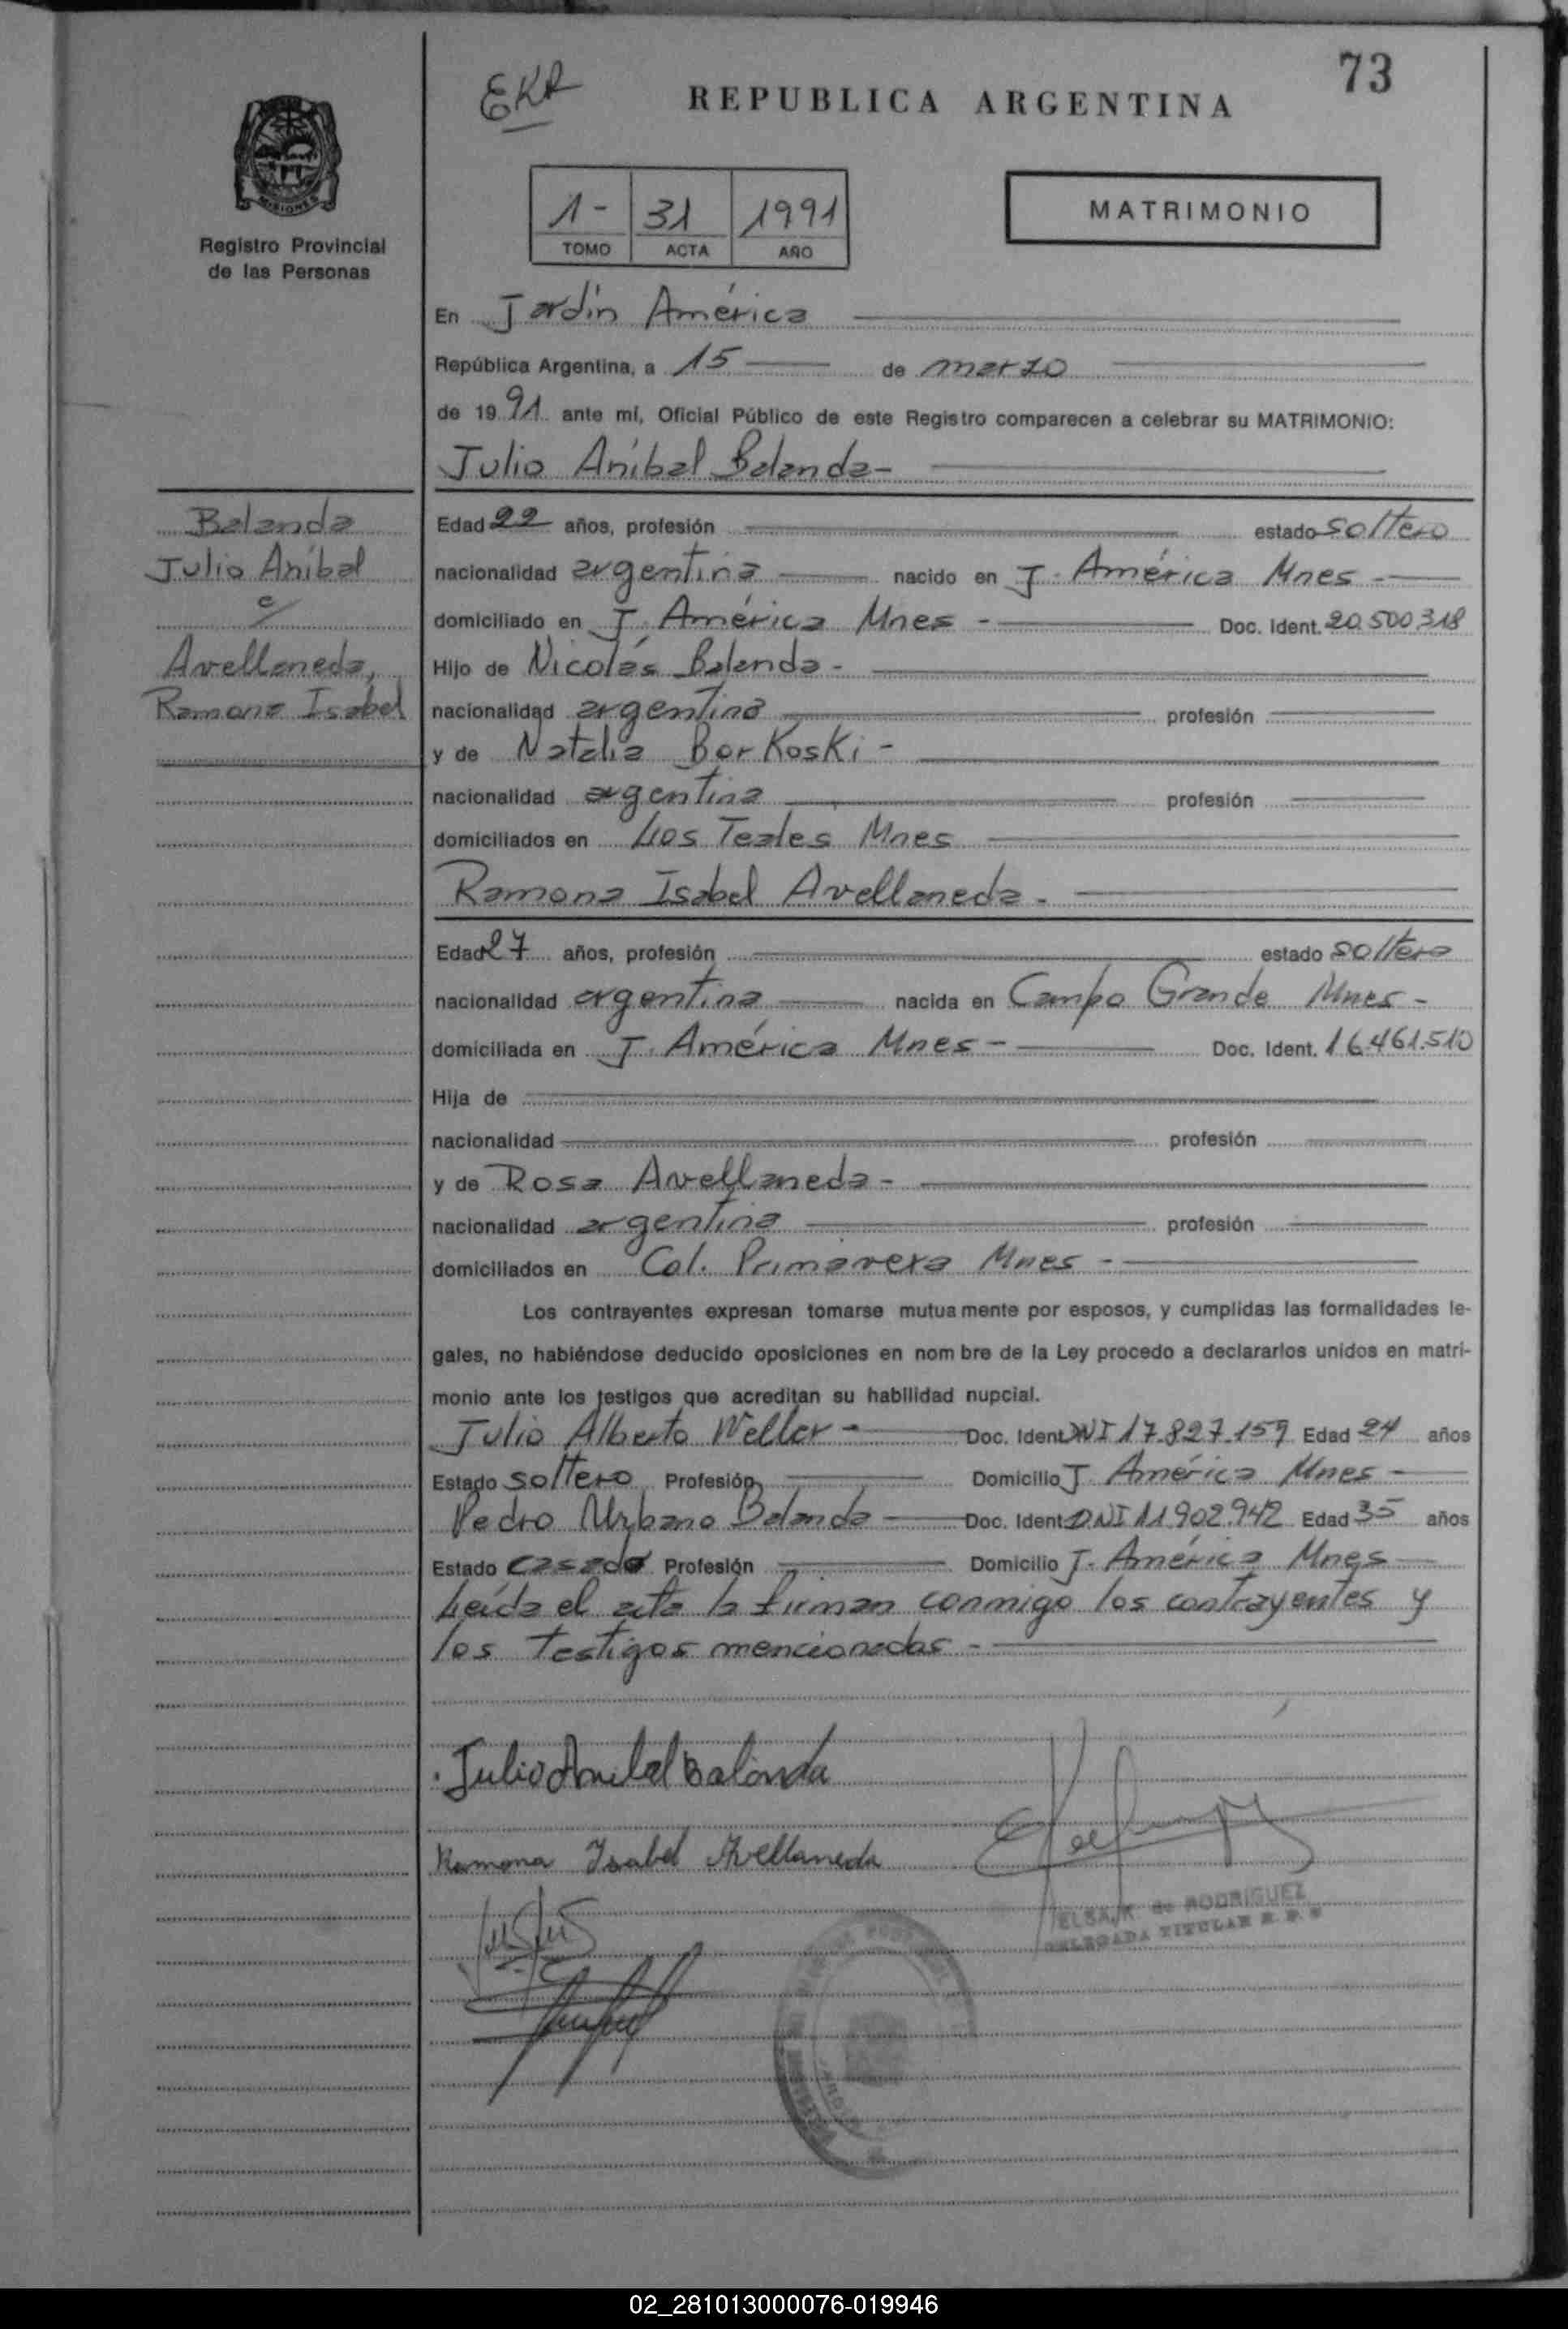 73
EKR
REPUBLICA ARGENTINA
MISIONES
Registro Provincial
de las Personas
1- 31 1991
TOMO ACTA AÑO
MATRIMONIO
En Jardín América
República Argentina, a 15 de marzo
de 1991 ante mí, Oficial Público de este Registro comparecen a celebrar su MATRIMONIO:
Julio Aníbal Balanda-
Balanda
Julio Aníbal
c/
Avellaneda,
Ramona Isabel
Edad 22 años, profesión estado soltero
nacionalidad argentina nacido en J. América Mnes -
domiciliado en J. América Mnes - Doc. Ident. 20.500.318
Hijo de Nicolás Balanda -
nacionalidad argentina profesión
y de Natalia Borkoski -
nacionalidad argentina profesión
domiciliados en Los Teales Mnes
Ramona Isabel Avellaneda -
Edad 27 años, profesión estado soltera
nacionalidad argentina nacida en Campo Grande Mnes -
domiciliada en J. América Mnes - Doc. Ident. 16.461.510
Hija de
nacionalidad profesión
y de Rosa Avellaneda -
nacionalidad argentina profesión
domiciliados en Col. Primavera Mnes -
Los contrayentes expresan tomarse mutuamente por esposos, y cumplidas las formalidades le-
gales, no habiéndose deducido oposiciones en nombre de la Ley procedo a declararlos unidos en matri-
monio ante los testigos que acreditan su habilidad nupcial.
Julio Alberto Weller - Doc. Ident DNI 17.827.159 Edad 24 años
Estado soltero Profesión Domicilio J. América Mnes -
Pedro Urbano Balanda - Doc. Ident DNI 11.902.942 Edad 35 años
Estado casado Profesión Domicilio J. América Mnes
Leída el acta la firman conmigo los contrayentes y
los testigos mencionados -
Julio Anibal Balanda
Ramona Isabel Avellaneda
ELSA K. de RODRIGUEZ
DELEGADA TITULAR R. P. P.
02_281013000076-019946